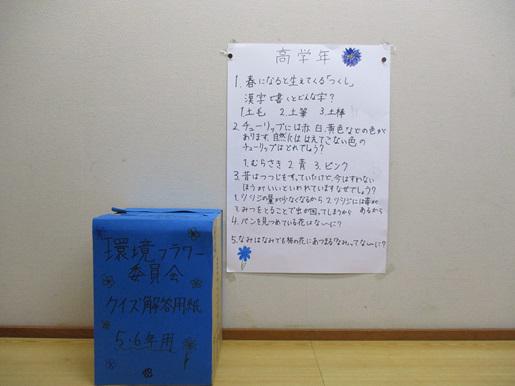 高学年
1. 春になると生えてくる「つくし」
漢字で書くとどんな字?
1.土毛 2.土筆 3.土棒
2. チューリップには赤、白、黄色などの色が
あります。自然には
はえてこない色の
チューリップはどれでしょう?
1.むらさき 2.青 3.ピンク
3. 昔はつつじをすっていたけど、今はすわない
ほうがいいといわれていますなぜでしょう?
1.ツツジの量が少なくなるから 2.ツツジには毒が
あるから
3.みつをとることで虫が困ってしまうから
4. パンを見つめている花はな〜に?
5. なみはなみでも桜の花にあつまる「なみ」ってな〜に?
環境フラワー
委員会
クイズ解答用紙
5・6年用